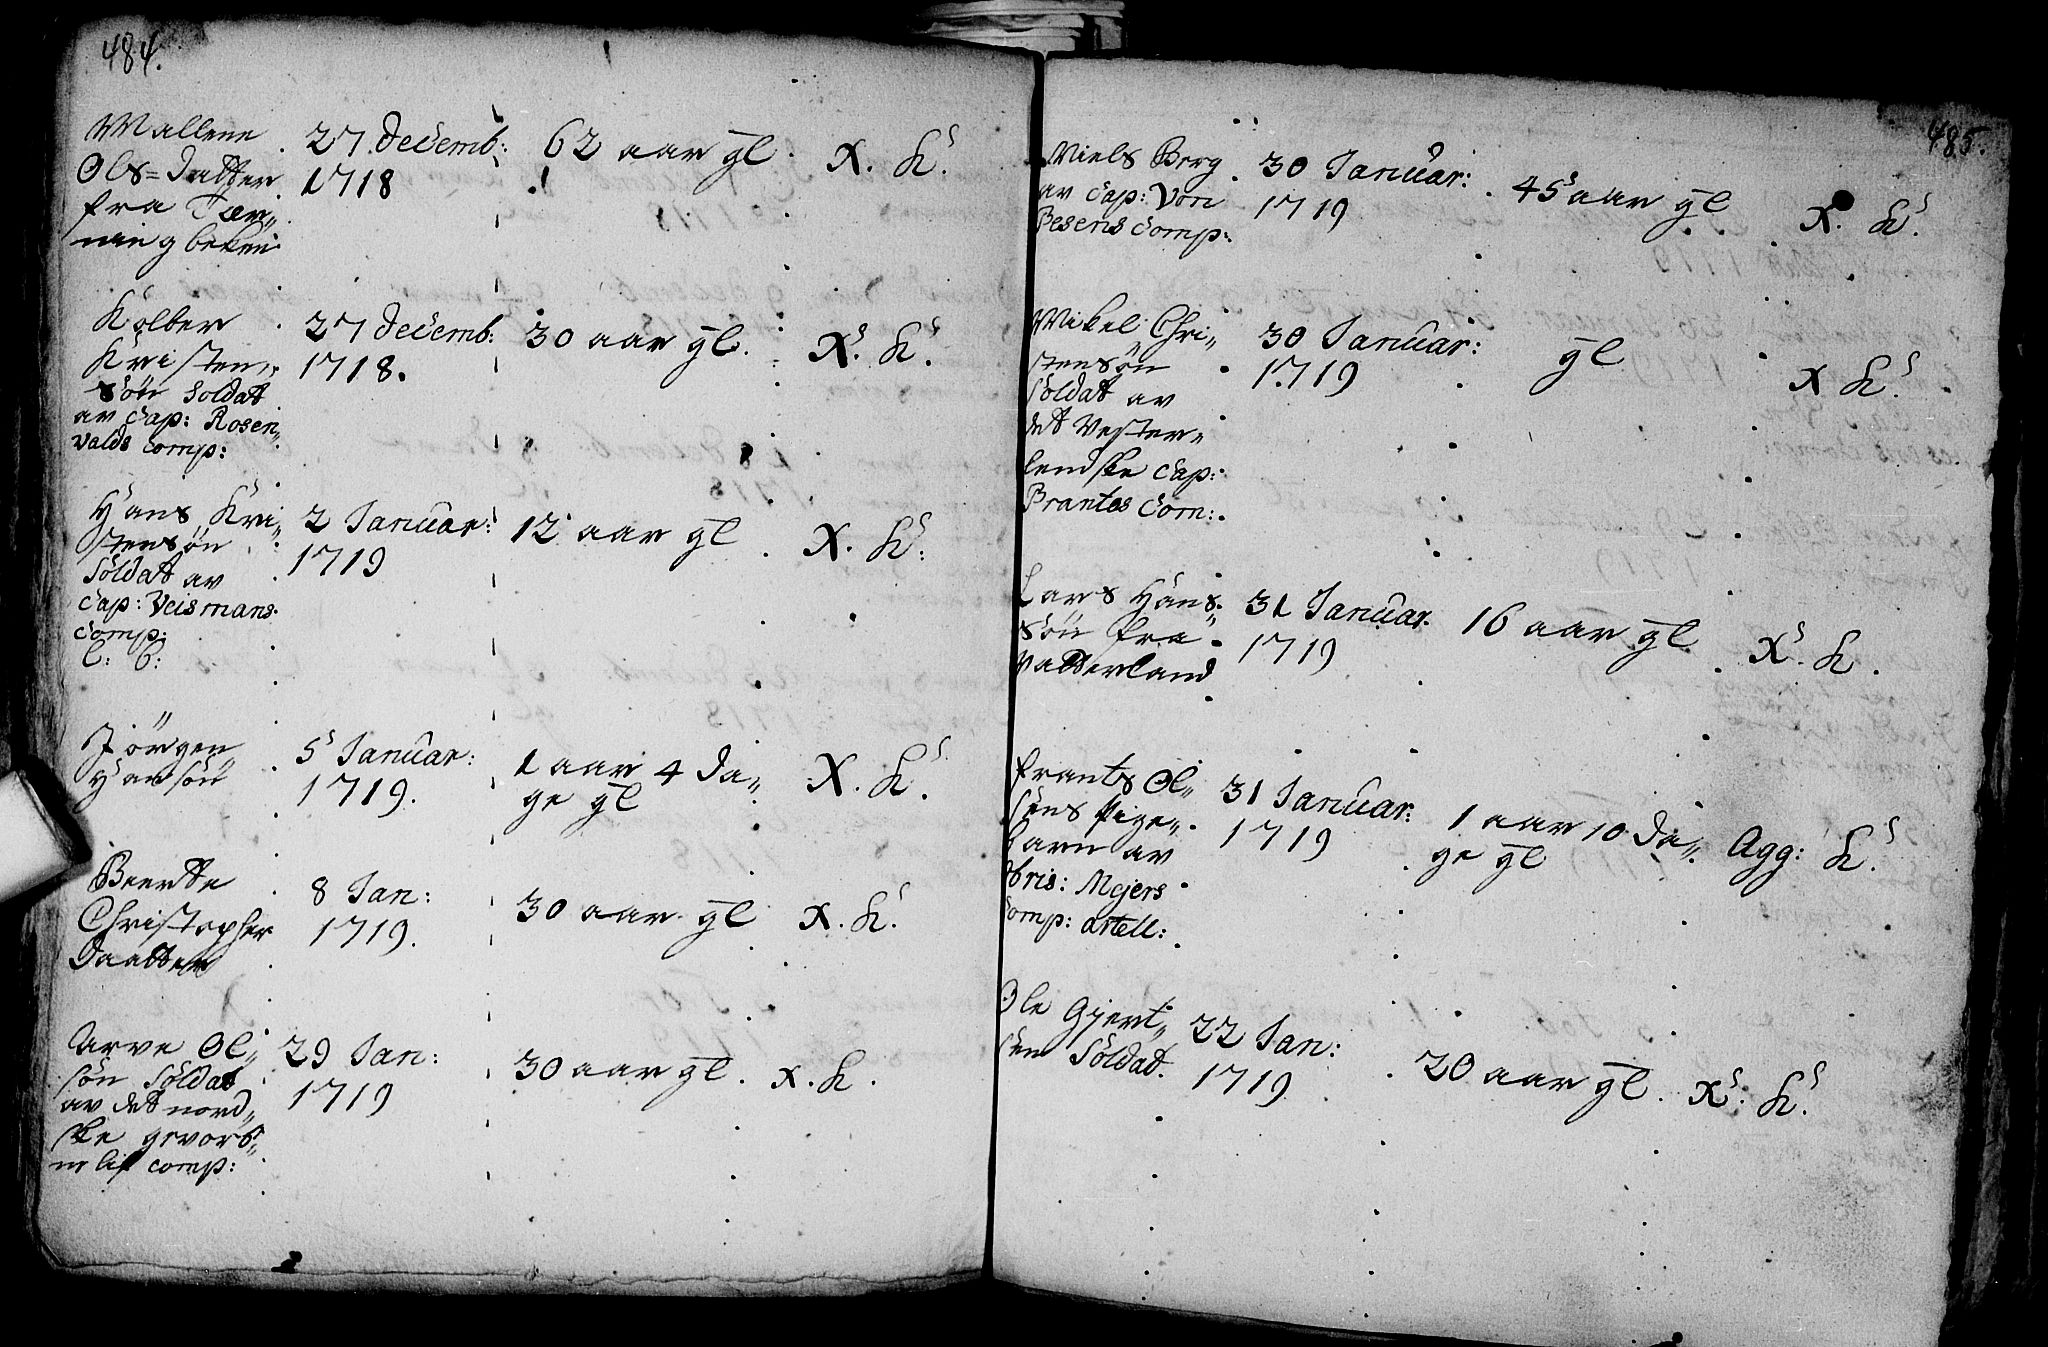 484.
Mallene
Ols=datter
fra Tør„
ning beken
27 decemb:
1718
62 aar gl.
X. K.
Kolber
Kristen„
søn Soldat
av Cap: Rosen„
valds Comp:
27 decemb:
1718.
30 aar gl.
X. K.
Hans Kri„
stensøn
Soldat av
Cap: Veismans
Comp:
l: C:
2 Januar:
1719
12 aar gl
X. K:
Jörgen
Hansøn
5 Januar:
1719.
1 aar 4 da„
ge gl
X. K.
Beertte
Christopher
Daatter
8 Jan:
1719.
30 aar gl
X. K.
Arve Ol„
søn Soldat
av det nord„
ske gevorb„
ne lif comp:
29 Jan:
1719
30 aar gl.
X. K.
485.
Niels Berg
av Cap: Von
Besens Comp:
30 Januar:
1719
45 aar gl
X. K.
Mikel Chri„
stensøn
Soldat av
det Vester„
lendske Cap:
Brantes Com:
30 Januar:
1719
gl
X K.
Lars Hans„
søn fra
Vatterland
31 Januar.
1719
16 aar gl
X. K.
frants Ol„
sens Pige„
barn av
Obris: Mejers
Comp: artell:
31 Januar:
1719
1 aar 10 da„
ge gl
Agg: K.
Ole Gjert„
sen Soldat.
22 Jan:
1719
20 aar gl.
X: K.